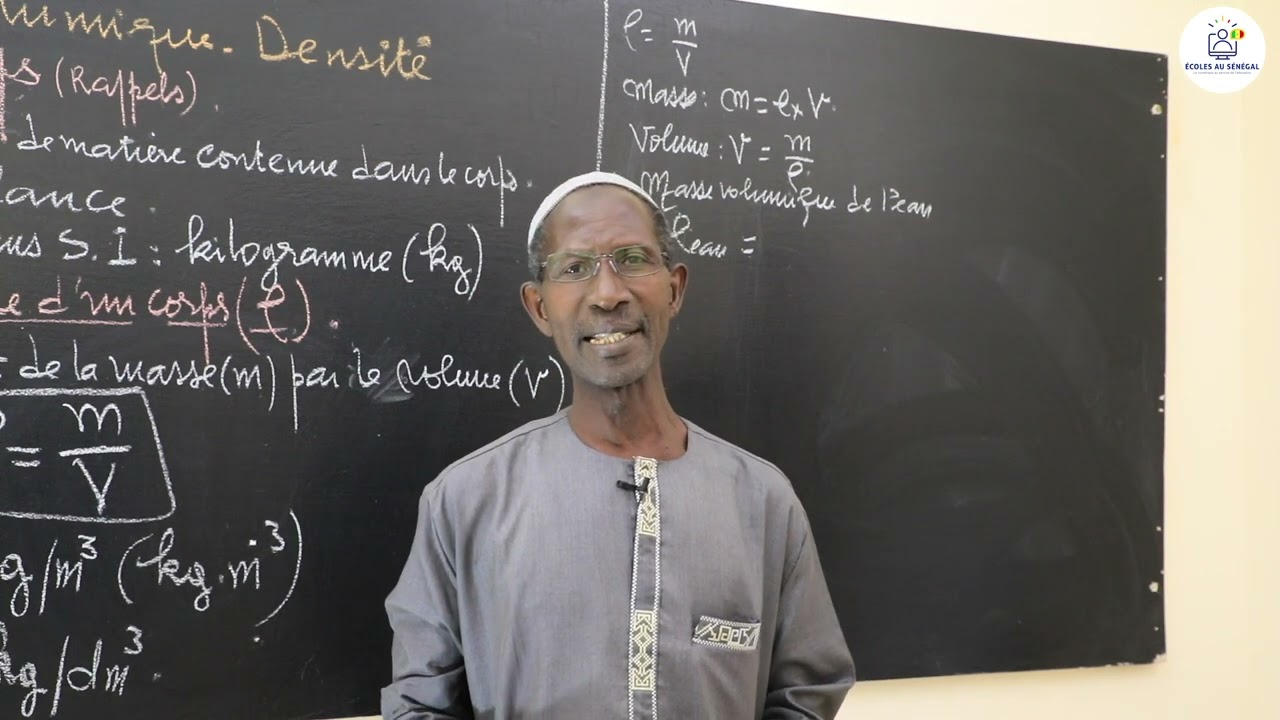 lumique - Densité
ps (Rappels).
de matière contenue dans le corps.
lance.
ns S.I : kilogramme (kg)
e d'un corps (ρ).
t de la masse (m) par le volume (V)
ρ = m/V
g/m³ (kg.m⁻³)
kg/dm³.
ρ = m/V
Masse : m = ρ x V.
Volume : V = m/ρ.
Masse volumique de l'eau
ρeau =
ÉCOLES AU SÉNÉGAL